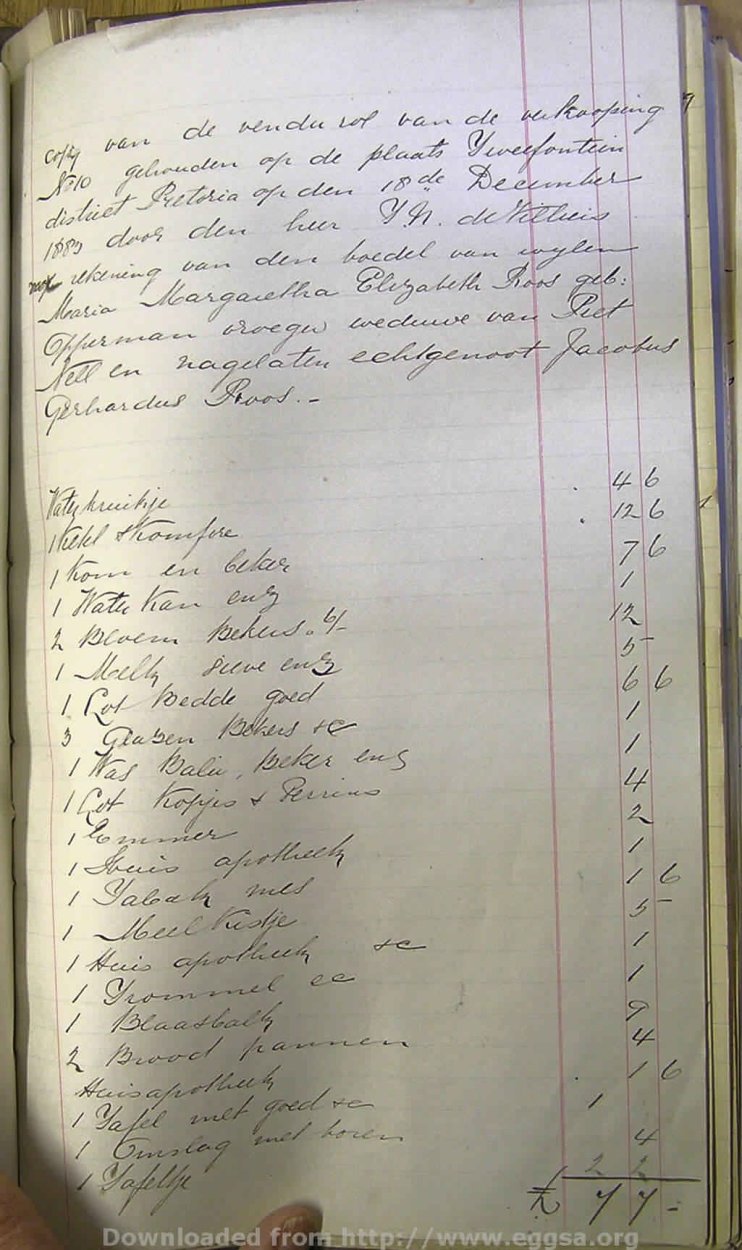 Copy van de vendu rol van de verkooping 9
No 10 gehouden op de plaats Tweefontein
district Pretoria op den 18de December
1883 door den heer de Villiers
rekening van den boedel van wylen
Maria Margaretha Elizabeth Roos geb:
Opperman vroeger weduwe van Piet
Nell en nagelaten echtgenoot Jacobus
Gerhardus Roos. -
Waterkruikje 4 6
1 Ketel & Komfore 12 6
1 Kom en beker 7 6
1 Water Kan enz 1
2 Bloem Bekers. 6/- 12
1 Melk sieve enz 5 -
1 Lot Bedde goed 6 6
3 Glazen Bekers &c 1
1 Was Balie, Beker enz 1
1 Lot Kopjes & Pierrins 4
1 Emmer 2
1 Huis apotheek 1
1 Tabak mes 1 6
1 Meel Kistje 5 -
1 Huis apotheek &c 1
1 Trommel &c 1
1 Blaasbalk 9
2 Brood pannen 4
Huisapotheek 1 6
1 Tafel met goed &c 1
1 Omslag met boren 4
1 Tafeltje 2 2
£ 7 7 -
Downloaded from http://www.eggsa.org